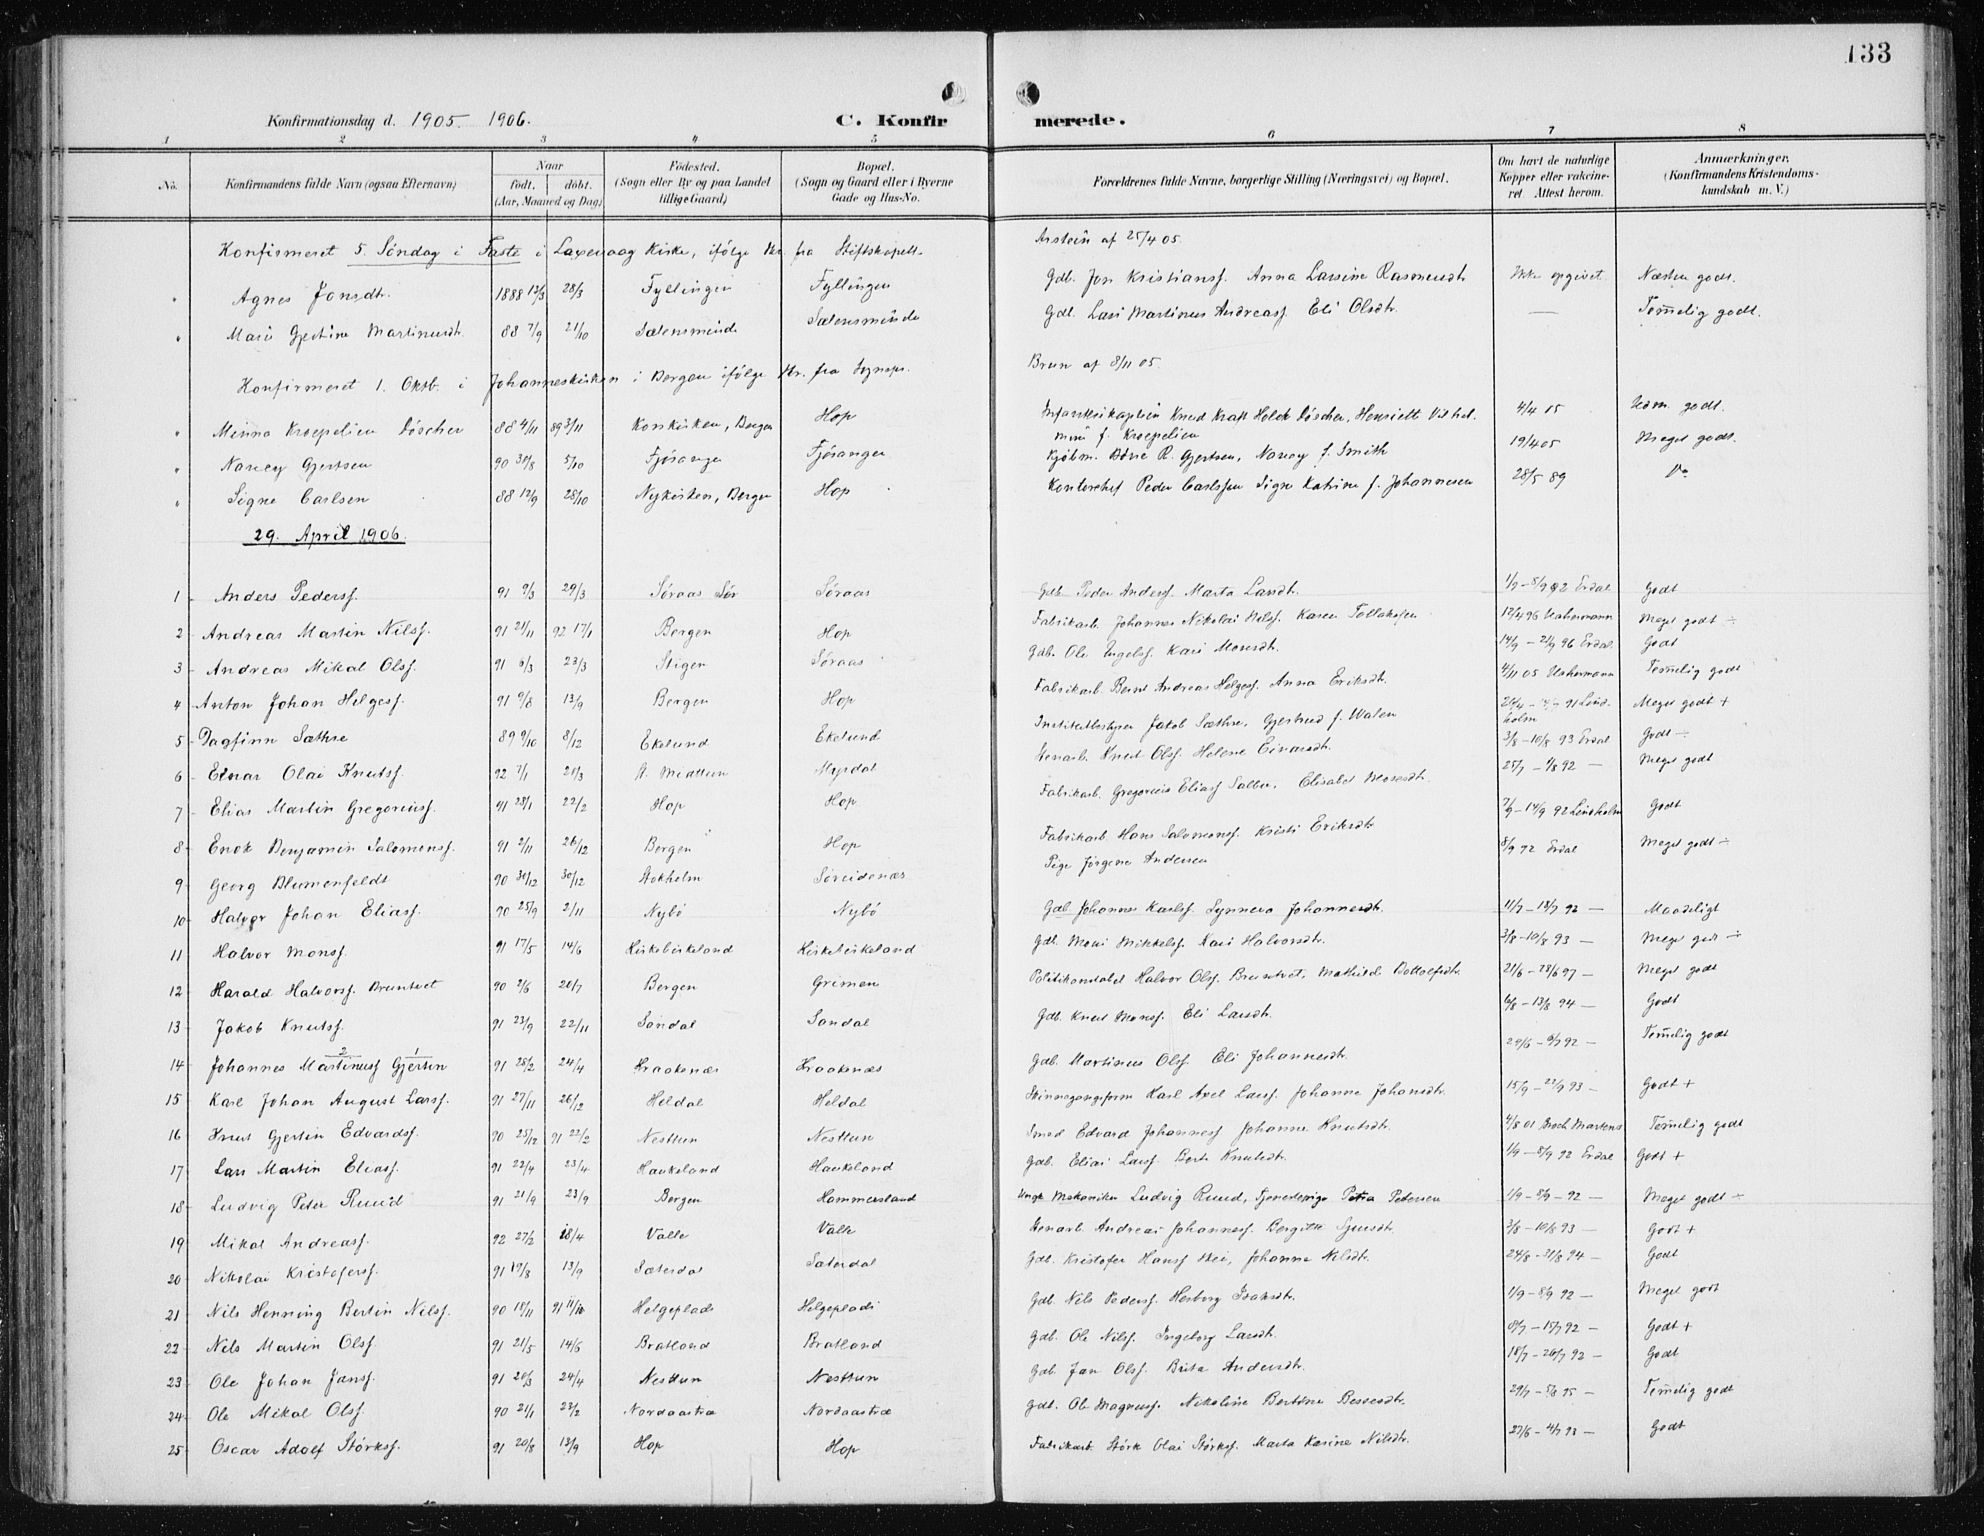 133
Konfirmationsdag d. 1905. 1906. C. Konfirmerede.
1 2 3 4 5 6 7 8
No. Konfirmandens fulde Navn (ogsaa Efternavn) Naar født. døbt. (Aar, Maaned og Dag) Fødested. (Sogn eller By og paa Landet tillige Gaard) Bopæl. (Sogn og Gaard eller i Byerne Gade og Hus-No. Forældrenes fulde Navne, borgerlige Stilling (Næringsvei) og Bopæl. Om havt de naturlige Kopper eller vakcineret. Attest herom. Anmærkninger. (Konfirmandens Kristendomskundskab m. V.)
Konfirmeret 5. Søndag i Faste i Laxevaag Kirke, ifølge fra Stiftskapell. Arstein af 25/4 05.
" Agnes Jonsdt. 1888 13/3 28/3 Fyllingen Fyllingen Gdb. Jon Kristiansf. Anna Lassine Rasmusdt. Ikke opgivet Næsten godt.
" Mari Gjertine Martinusdt. 88 7/9 21/10 Sælensminde Sælensminde Gdb. Lars Martinus Andreasf Eli Olsdtr. — Temmelig godt.
Konfirmeret 1. Oktb. i Johanneskirken i Bergen ifølge fra Sognepr. Brun af 8/11 05.
" Minna Kroepelien Döscher 88 4/11 89 3/11 Korskirken, Bergen Hop Infanterikaptein Knud Kraft Holck Döscher, Henriette Vilhelmine f. Kroepelien 4/4 05 godt.
" Nancy Gjertsen 90 30/8 5/10 Fjøsanger Fjøsanger Kjøbm. R. Gjertsen, Nancy f. Smith 19/4 05 Meget godt.
" Signe Carlsen 88 12/9 28/10 Nykirken, Bergen Hop Kontorchef Peder Carlssen Signe Katrine f. Johannesen 28/5 89 Do
29. April 1906.
1 Anders Pedersf. 91 9/3 29/3 Søraas Sør Søraas Gdb. Peder Andersf. Marta Larsdt. 1/9 – 8/9 92 Erdal Godt
2 Andreas Martin Nilsf. 91 21/11 92 17/1 Bergen Hop Fabrikarb. Johannes Nikolai Nilsf. Karen Tollaksen 12/4 96 Uchermann Meget godt ÷
3 Andreas Mikal Olsf. 91 6/3 23/3 Stigen Søraas Gdb. Ole Ingelsf. Kari Monsdt. 14/9 – 21/9 96 Erdal Godt
4 Anton Johan Helgesf. 91 9/8 13/9 Bergen Hop Fabrikarb. Bernt Andreas Helgesf. Anna Eriksdt. 4/11 05 Uchermann Temmelig godt
5 Dagfinn Sæthre 89 9/10 8/12 Ekelund Ekelund Institutbestyrer Jakob Sæthre, Gjertrud f. Walen 91 Lindholm Meget godt +
6 Einar Olai Knutsf. 92 7/1 21/3 Ø. Midttun Myrdal Stenarb. Knut Olsf. Helene Einarsdt. 3/8 – 10/8 93 Erdal Godt ÷
7 Elias Martin Gregoriusf. 91 23/1 22/2 Hop Hop Fabrikarb. Gregorius Eliasf Salbu, Elisabet Monsdt. 25/7 – 1/8 92 — Meget godt
8 Enok Benjamin Salomonsf. 91 2/11 26/12 Bergen Hop Fabrikarb. Hans Salomonsf. Kristi Eriksdt. 7/9 – 14/9 92 Lindholm Godt
9 Georg Blumenfeldt 90 30/12 Stokholm Søreidenæs Pige Jörgine Andersen 8/9 92 Erdal Meget godt ÷
10 Halvor Johan Eliasf. 90 25/9 2/11 Nybö Nybö Gdb. Johannes Karlsf. Synneva Johannesdt. 11/7 – 18/7 92 — Maadeligt
11 Halvor Monsf. 91 17/5 14/6 Kirkebirkeland Kirkebirkeland Gdb. Mons Mikkelsf. Kari Halvorsdt. 3/8 – 10/8 93 — Meget godt ÷
12 Harald Halvorsf. Bruntvet 90 2/6 20/7 Bergen Grimen Politikonstabel Halvor Olsf. Bruntvet, Mathilde Bottolfsdt. 21/6 – 28/6 97 — Meget godt
13 Jakob Knutsf. 91 23/9 22/11 Sandal Sandal Gdb. Knut Monsf. Eli Larsdt. 6/8 – 13/8 94 — Godt
14 Johannes Martinusf Gjertin 91 28/2 24/4 Kraakenæs Kraakenæs Gdb. Martinus Olsf. Eli Johannesdt. 29/6 – 6/7 92 — Temmelig godt
15 Karl Johan August Larsf. 91 27/11 26/12 Heldal Heldal Karl Axel Larsf. Johanne Johansdt. 15/9 – 22/9 93 — Godt +
16 Knut Gjertin Edvardsf. 90 25/12 91 22/2 Nesttun Nesttun Smed Edvard Johannesf Johanne Knutsdt. 4/8 01 Moch Martens Temmelig godt
17 Lars Martin Eliasf. 91 22/4 23/4 Haukeland Haukeland Gdb. Elias Larsf. Berte Knutsdt. 1/9 – 8/9 92 Erdal Godt +
18 Ludvig Peter Ruud 91 21/9 23/9 Bergen Hammersland Ungk Mekaniker Ludvig Ruud, Tjenestepige Petra Pedersen 1/9 – 8/9 – 92 — Meget godt ÷
19 Mikal Andreasf. 92 27/2 18/4 Valle Valle Stenarb. Andreas Johannesf. Bergitte Sjursdt. 3/8 – 10/8 93 — Godt +
20 Nikolai Kristofersf. 91 19/8 13/9 Sæterdal Sæterdal Gdb. Kristofer Hansf Hei, Johanne Nilsdt. 24/8 – 31/8 94 — Godt
21 Nils Henning Bertin Nilsf. 90 18/11 91 11/10 Helgeplads Helgeplads Gdb. Nils Pedersf. Herborg Isaksdt. 1/9 – 8/9 92 — Meget godt
22 Nils Martin Olsf. 91 21/5 14/6 Bratland Bratland Gdb. Ole Nilsf. Ingeborg Larsdt. 8/7 – 15/7 92 — Godt +
23 Ole Johan Jansf. 91 20/3 24/4 Nesttun Nesttun Gdb. Jan Olsf. Brita Andersdt. 18/7 – 26/7 92 — Godt
24 Ole Mikal Olsf. 90 21/1 23/2 Nordaastræ Nordaastræ Gdb. Ole Magnusf. Nikoline Bertine Bessesdt. 29/7 – 5/8 95 — Temmelig godt
25 Oscar Adolf Störksf. 91 20/8 13/9 Hop Hop Fabrikarb. Störk Olai Störksf. Marta Karine Nilsdt. 27/6 – 4/7 93 — Godt